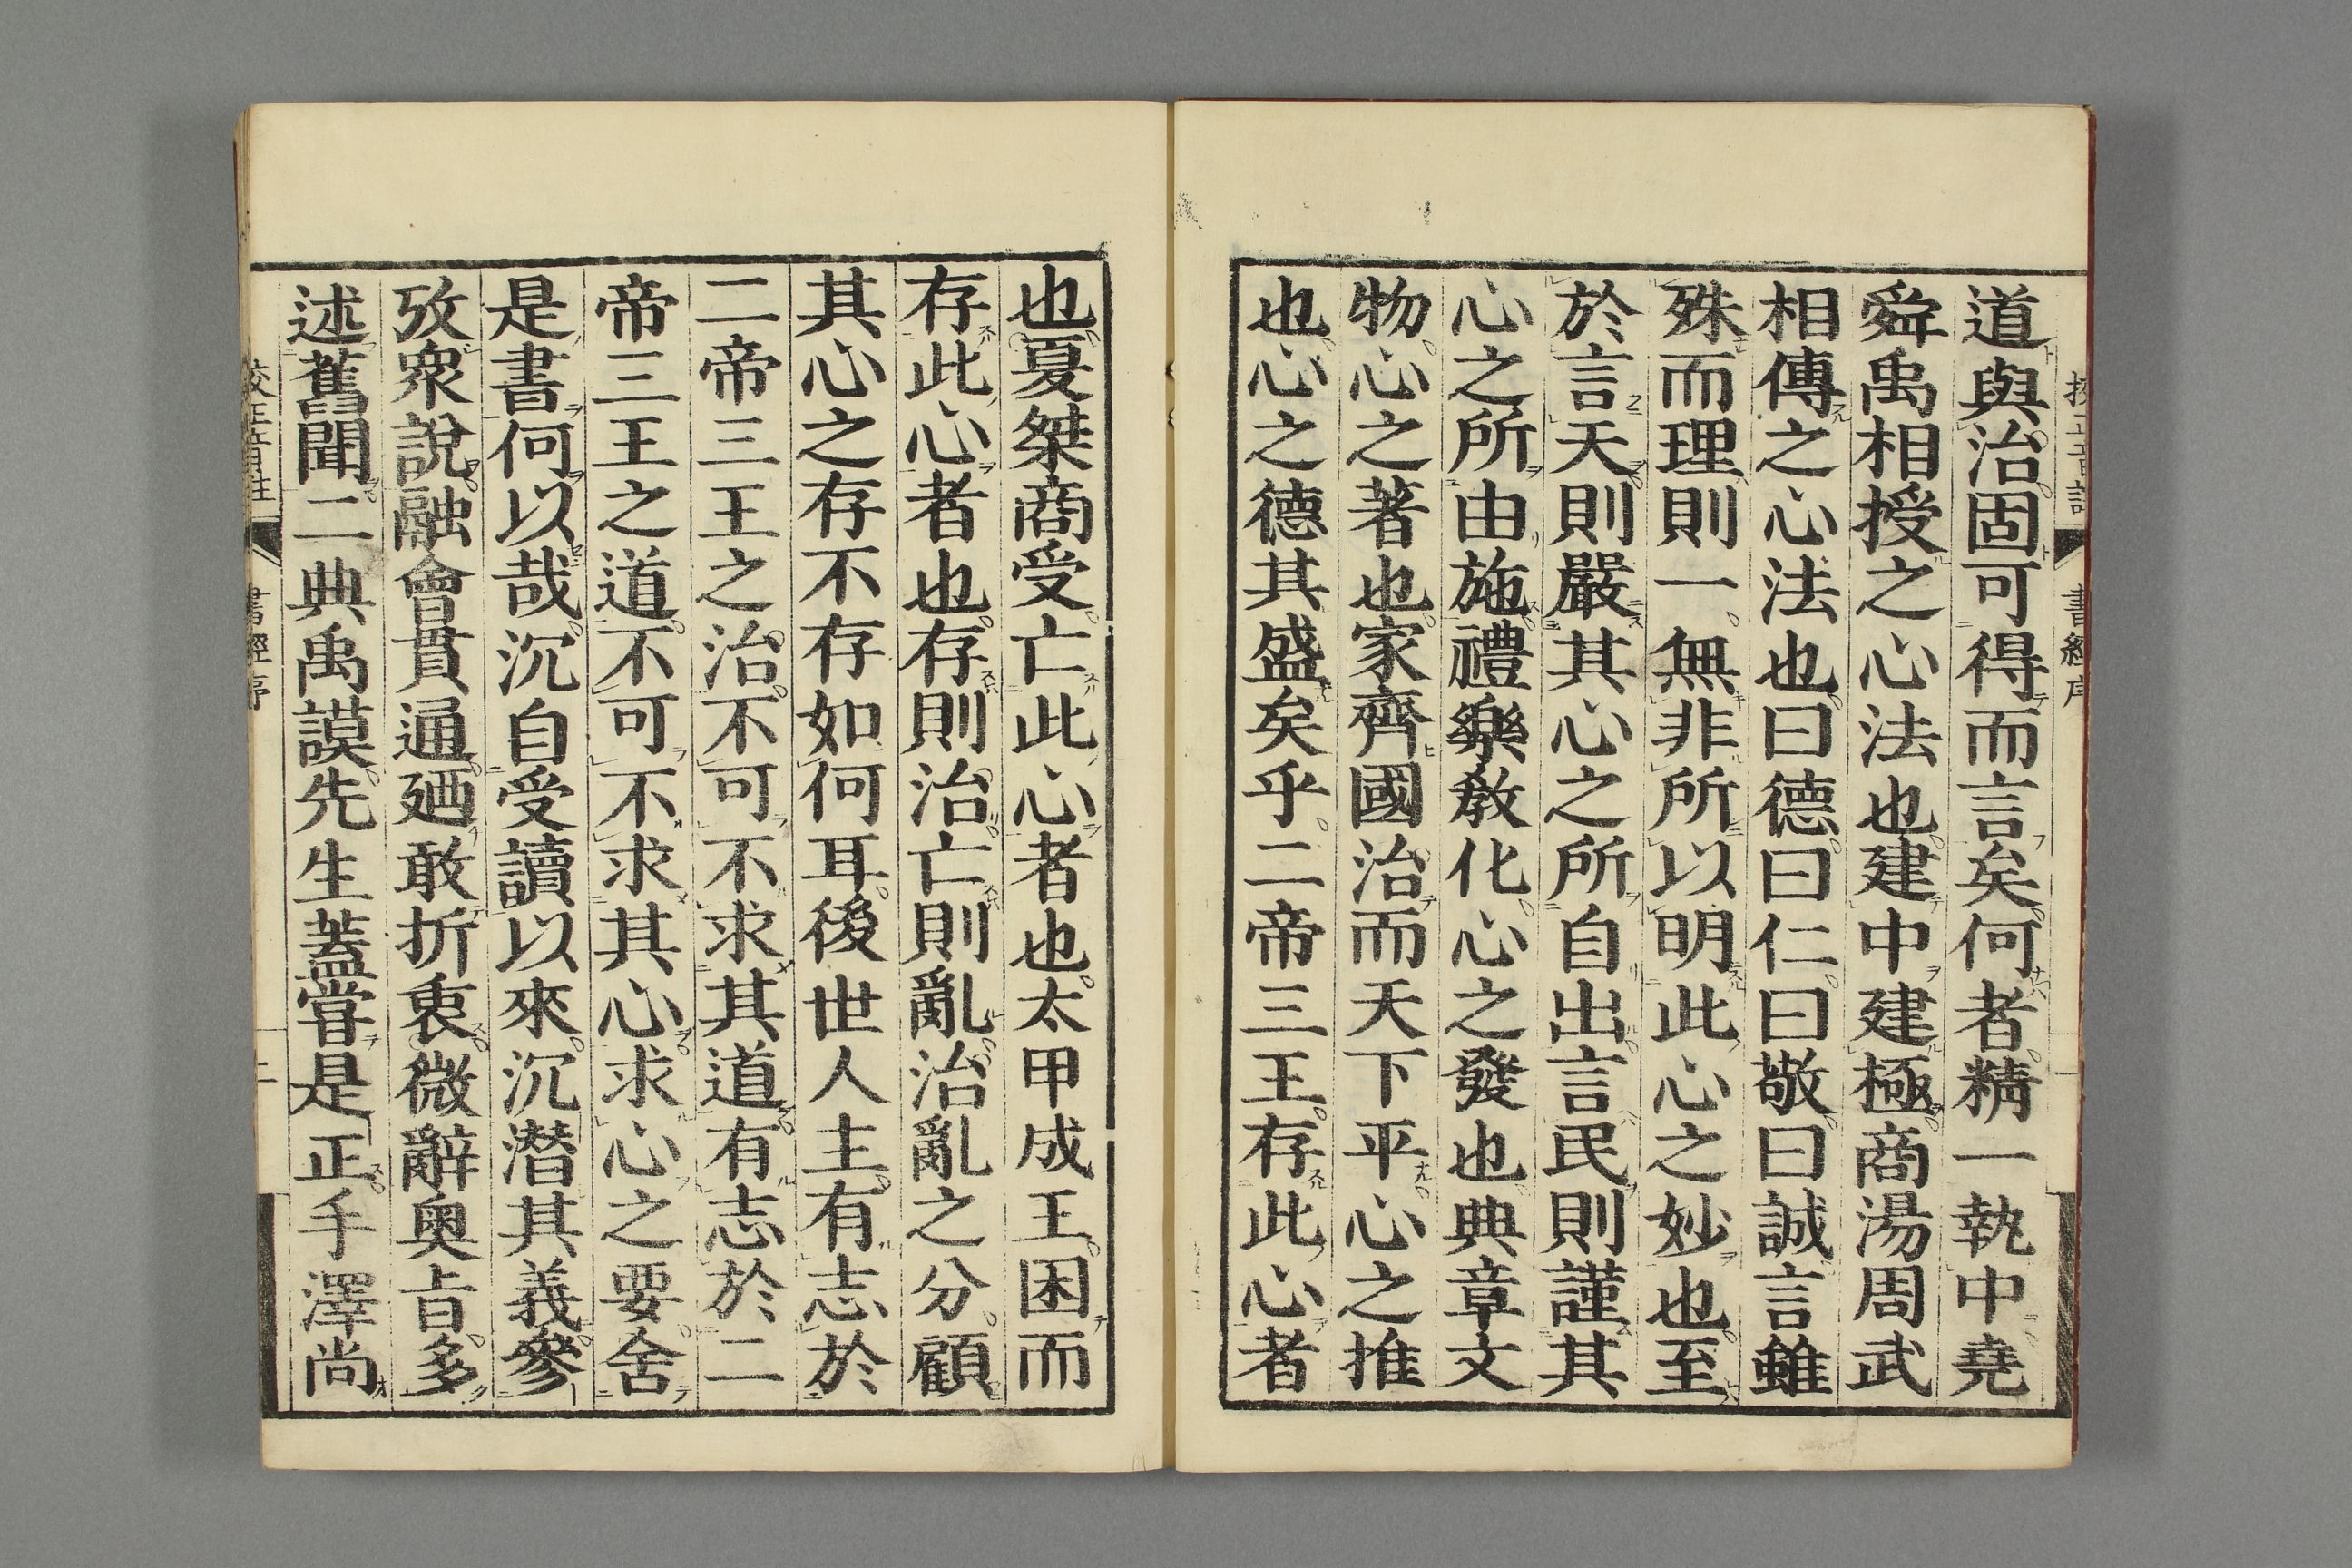 道與治固可得而言矣何者精一執中堯
舜禹相授之心法也建中建極商湯周武
相傳之心法也曰德曰仁曰敬曰誠言雖
殊而理則一無非所以明此心之妙也至
於言天則嚴其心之所自出言民則謹其
心之所由施禮樂敎化心之發也典章文
物心之著也家齊國治而天下平心之推
也心之德其盛矣乎二帝三王存此心者
也夏桀商受亡此心者也太甲成王困而
存此心者也存則治亡則亂治亂之分顧
其心之存不存如何耳後世人主有志於
二帝三王之治不可不求其道有志於二
帝三王之道不可不求其心求心之要舍
是書何以哉沉自受讀以來沉潛其義參
攷衆說融會貫通廼敢折衷微辭奥旨多
述舊聞二典禹謨先生蓋嘗是正手澤尚
書經序